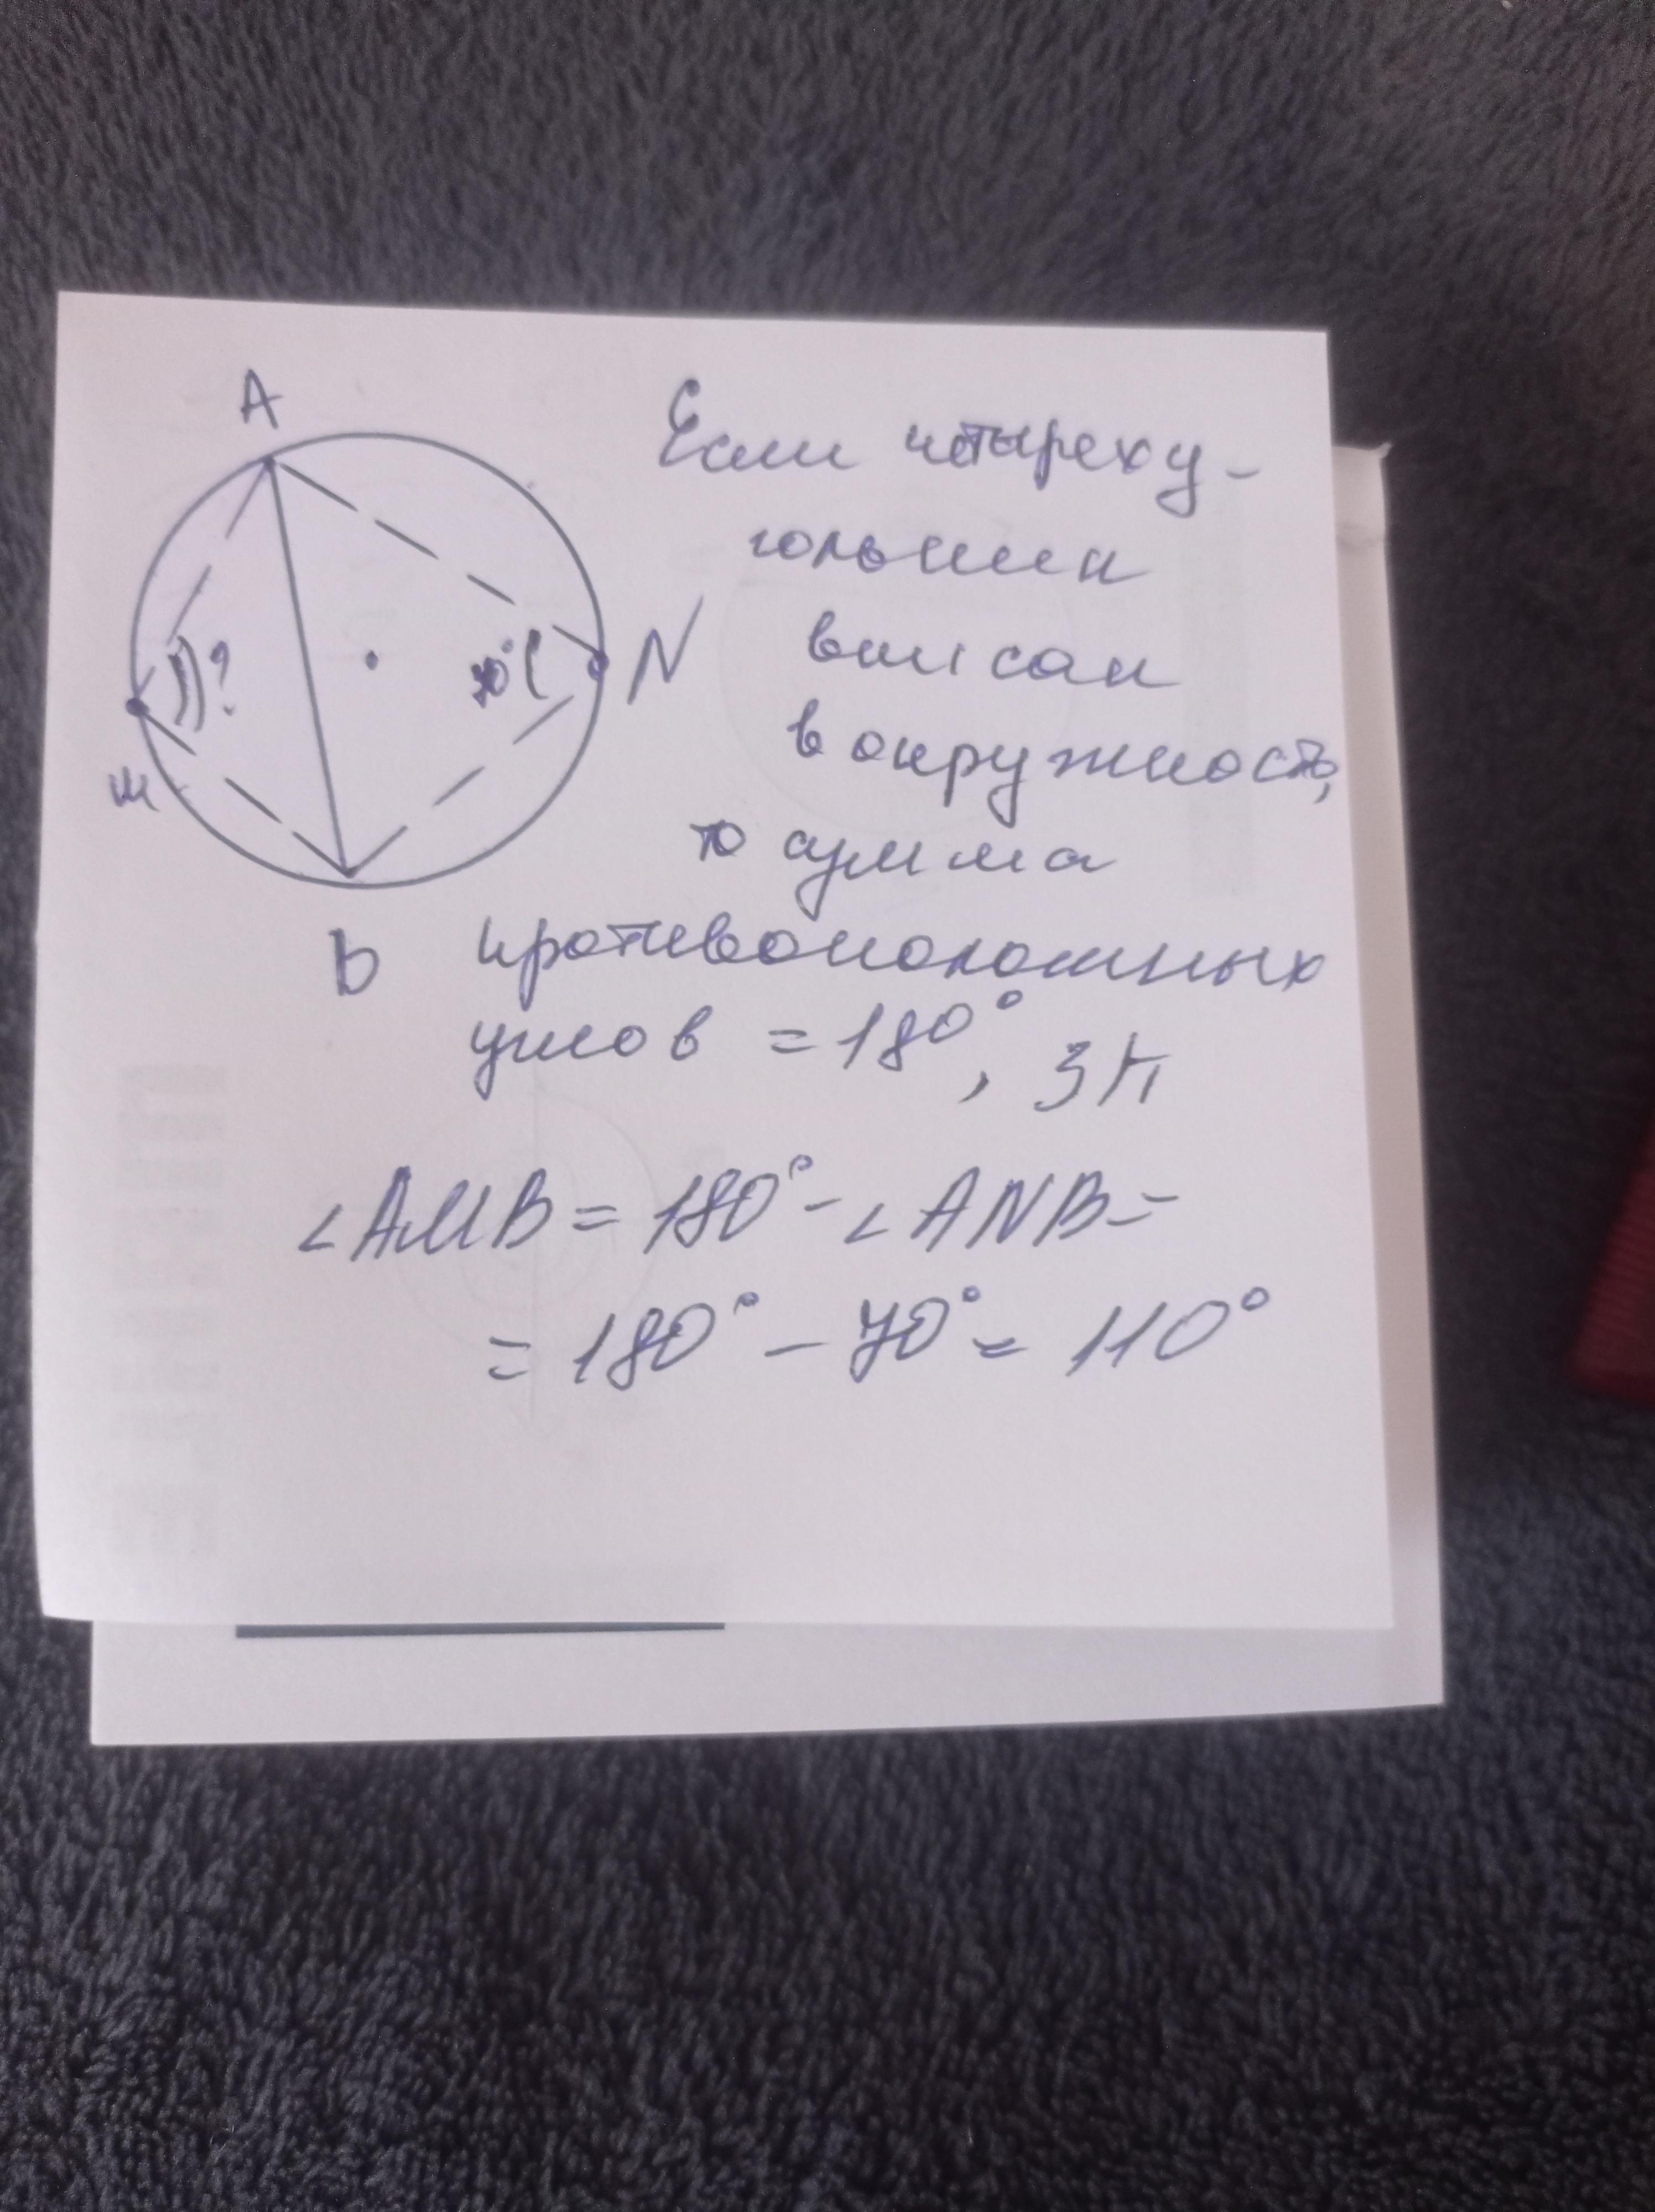 A
Если четыреху-
гольник
вписан
70° ?
N
в окружность,
M
то сумма
B
противоположных
углов = 180°,
∠AMB = 180° - ∠ANB =
= 180° - 70° = 110°